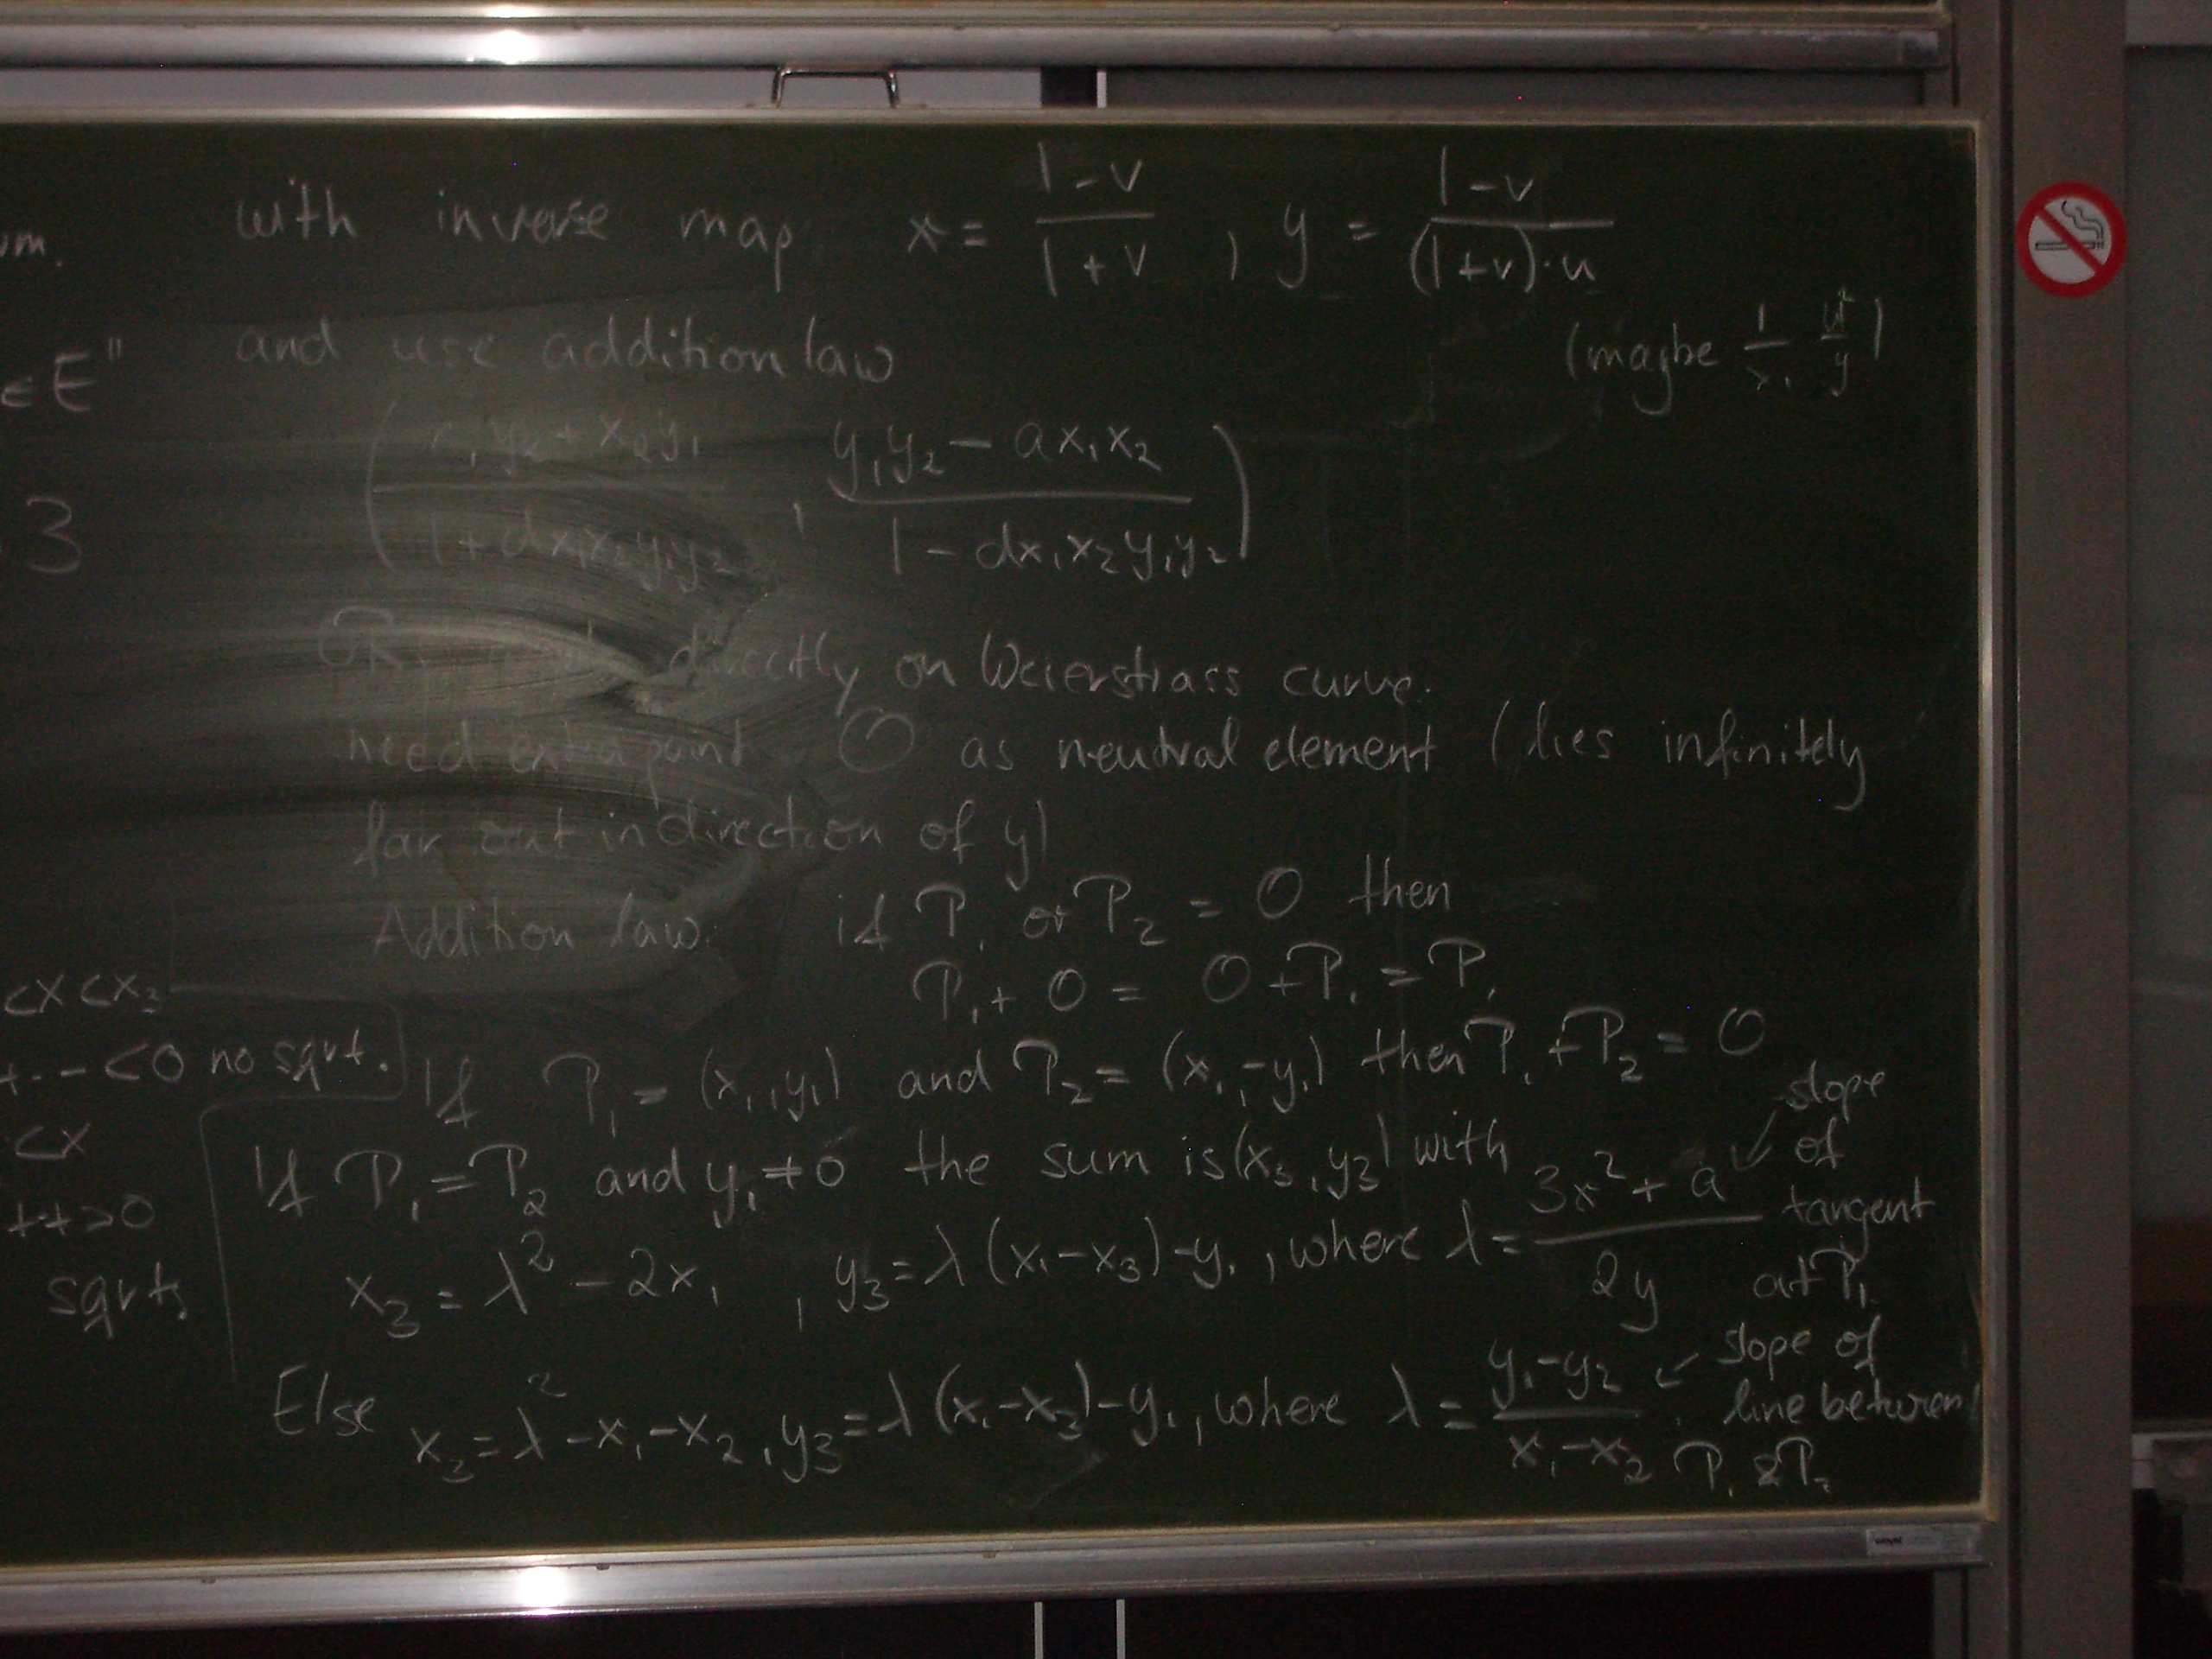 with inverse map x = (1-v)/(1+v), y = (1-v)/((1+v)·u)
um.
and use addition law
(maybe 1/x,
∈E"
( x₁y₂ + x₂y₁ / 1+dx₁x₂y₁y₂ , y₁y₂ - ax₁x₂ / 1 - dx₁x₂y₁y₂ )
3
OR directly on Weierstrass curve.
need extra point O as neutral element (lies infinitely
far out in direction of y)
Addition law if P₁ or P₂ = O then
P₁ + O = O + P₁ = P₁
<x<x₃
<0 no sqrt.
If P₁ = (x₁,y₁) and P₂ = (x₁,-y₁) then P₁ + P₂ = O
<x
If P₁ = P₂ and y₁ ≠ 0 the sum is (x₃,y₃) with
++>0
sqrt.
x₃ = λ² - 2x₁, y₃ = λ(x₁-x₃)-y₁, where λ = (3x²+a)/(2y) ↙ slope of tangent at P₁.
Else x₃ = λ²-x₁-x₂, y₃ = λ(x₁-x₃)-y₁, where λ = (y₁-y₂)/(x₁-x₂) ↙ slope of line between P₁ & P₂